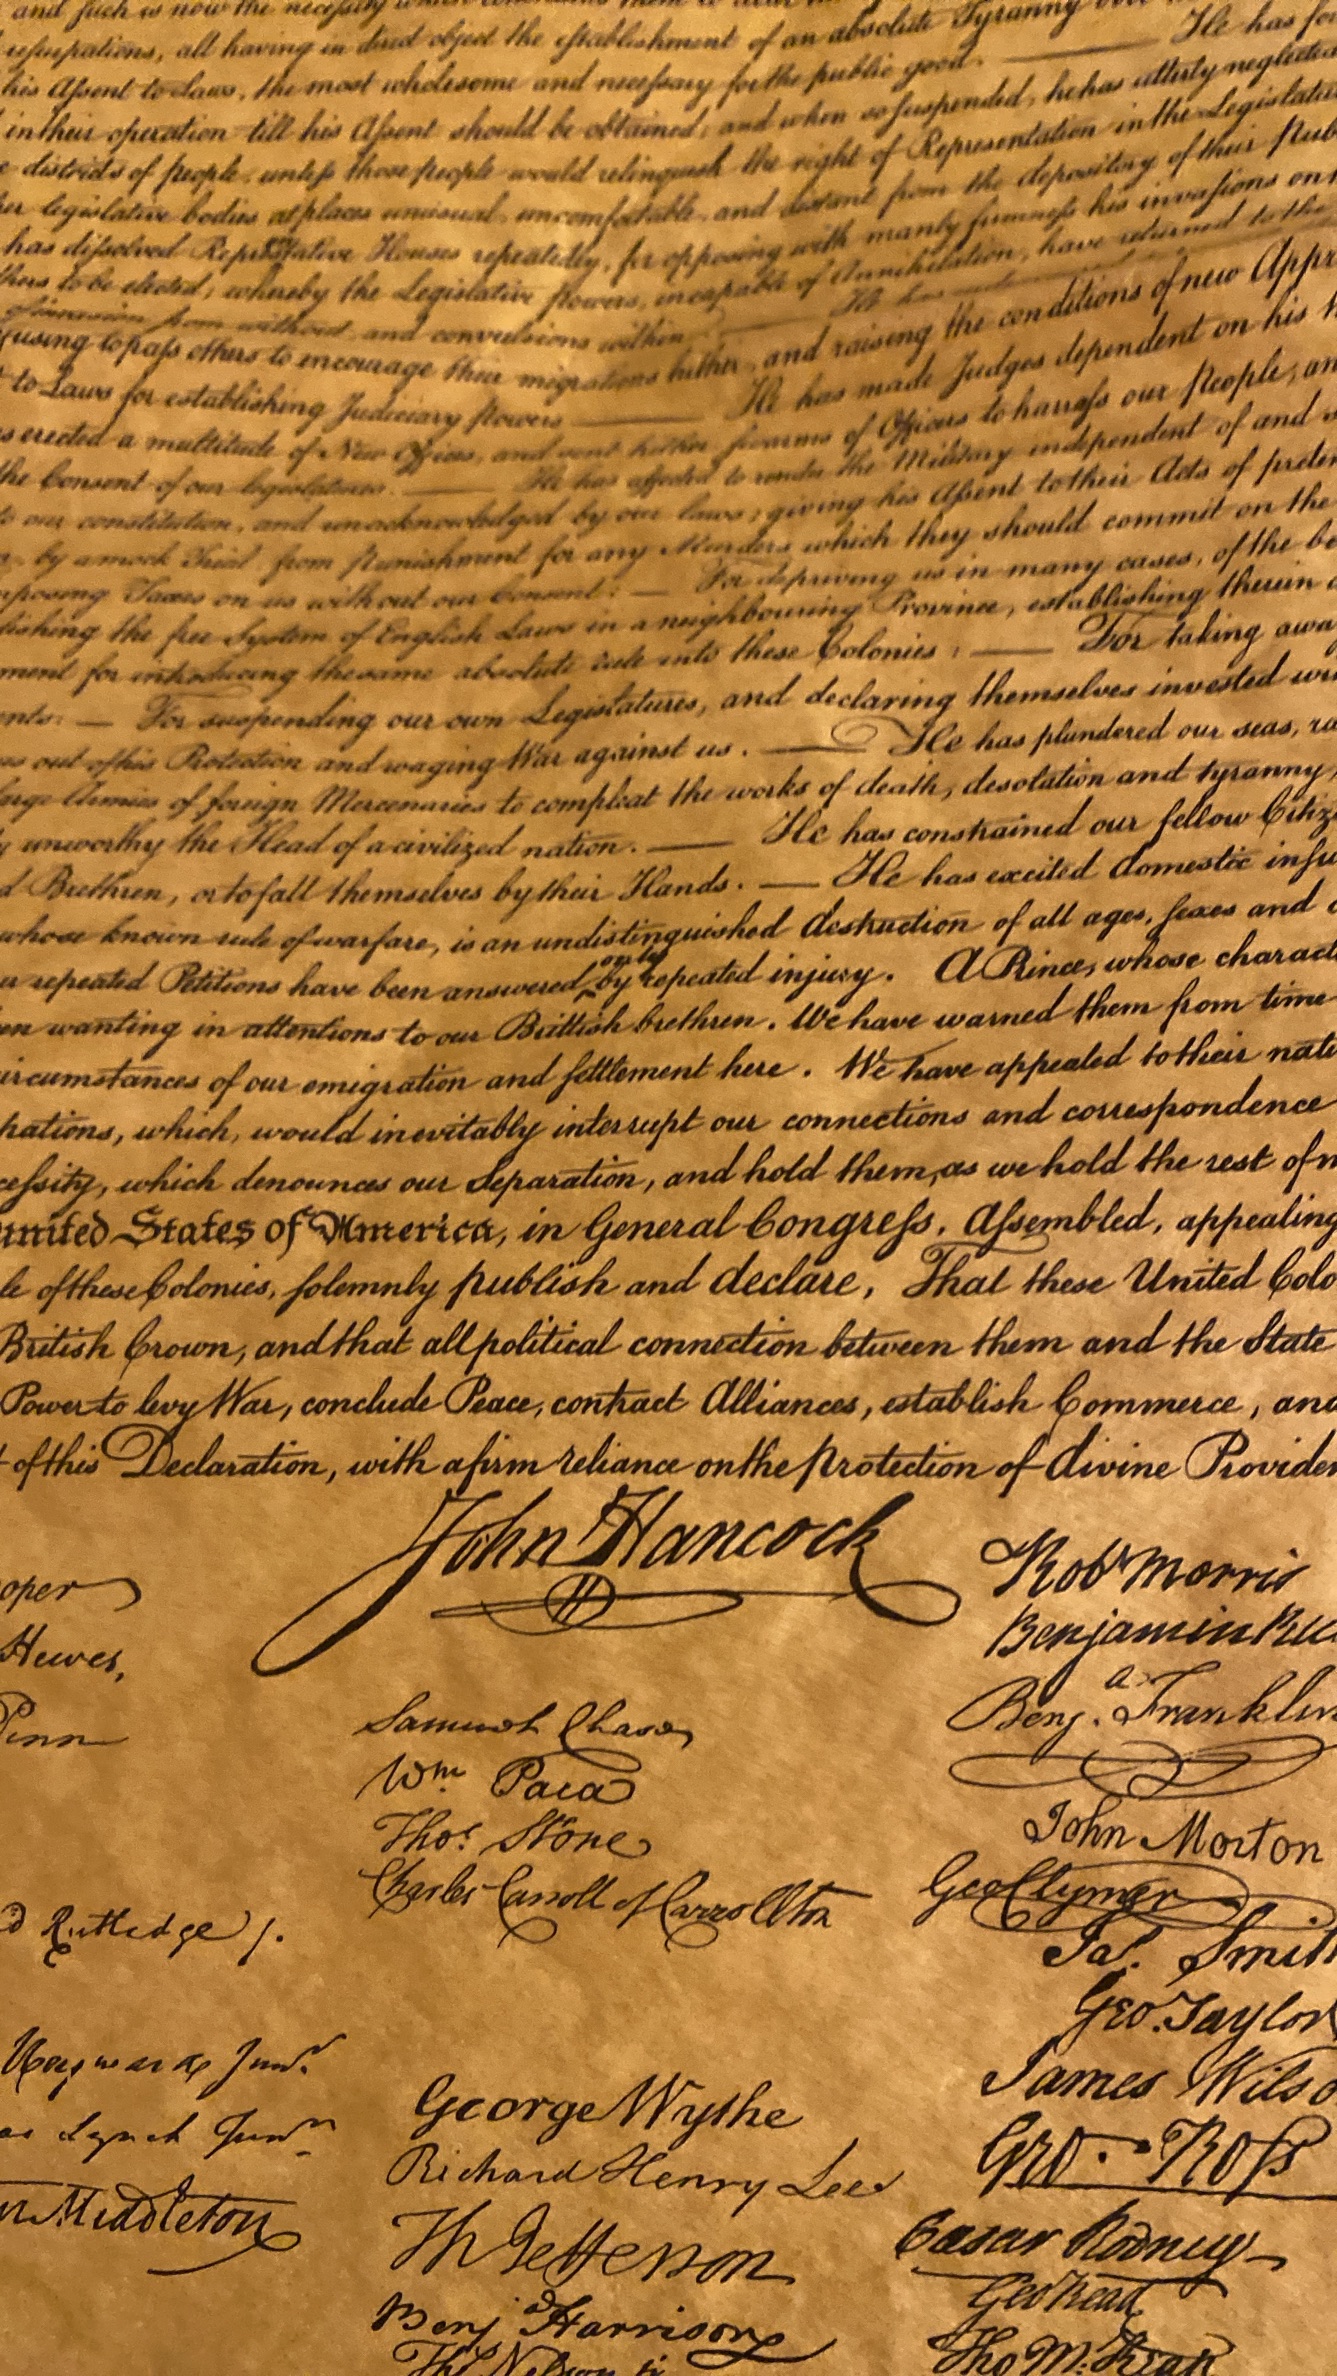 and such is now the necessity which constrains them to
usurpations, all having in direct object the establishment of an absolute Tyranny over
He has for
his Assent to Laws, the most wholesome and necessary for the public good.
in their operation till his Assent should be obtained; and when so suspended, he has utterly neglected
districts of people, unless those people would relinquish the right of Representation in the Legislatu
legislative bodies at places unusual, uncomfortable, and distant from the depository of their Pub
has dissolved Representative Houses repeatedly, for opposing with manly firmness his invasions on
thers to be elected; whereby the Legislative powers, incapable of Annihilation, have returned to the
invasion from without, and convulsions within. — He has
fusing to pass others to encourage their migrations hither, and raising the conditions of new Appr
to Laws for establishing Judiciary powers. — He has made Judges dependent on his
s erected a multitude of New Offices, and sent hither swarms of Officers to harrass our People, an
the Consent of our legislatures. — He has affected to render the Military independent of and
to our constitution, and unacknowledged by our laws; giving his Assent to their Acts of preten
by a mock Trial, from punishment for any Murders which they should commit on the
mposing Taxes on us without our Consent: — For depriving us in many cases, of the be
lishing the free System of English Laws in a neighbouring Province, establishing therein a
ment for introducing the same absolute rule into these Colonies: — For taking awa
ents: — For suspending our own Legislatures, and declaring themselves invested wi
us out of his Protection and waging War against us. — He has plundered our seas, ra
large Armies of foreign Mercenaries to compleat the works of death, desolation and tyranny,
y unworthy the Head of a civilized nation. — He has constrained our fellow Citize
d Brethren, or to fall themselves by their Hands. — He has excited domestic insu
whose known rule of warfare, is an undistinguished destruction of all ages, sexes and c
only
r repeated Petitions have been answered by repeated injury. A Prince, whose charact
en wanting in attentions to our Brittish brethren. We have warned them from time
ircumstances of our emigration and settlement here. We have appealed to their nati
pations, which, would inevitably interrupt our connections and correspondence
cessity, which denounces our Separation, and hold them, as we hold the rest of m
united States of America, in General Congress, Assembled, appealing
le of these Colonies, solemnly publish and declare, That these United Colo
British Crown, and that all political connection between them and the State
Power to levy War, conclude Peace, contract Alliances, establish Commerce, and
t of this Declaration, with a firm reliance on the protection of divine Providen
John Hancock
ooper
Hewes,
Penn
d Rutledge /.
Heyward Junr.
as Lynch Junr.
ur Middleton
Samuel Chase
Wm. Paca
Thos. Stone
Charles Carroll of Carrollton
George Wythe
Richard Henry Lee
Th Jefferson
Benj Harrison
Ths Nelson jr
Robt Morris
Benjamin Rus
Benj. a Franklin
John Morton
Geo Clymer
Jas. Smith
Geo. Taylor
James Wilso
Geo. Ross
Caesar Rodney
Geo Read
Tho M:Kean